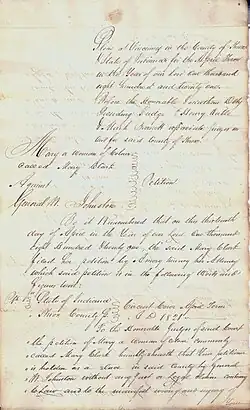 Pleas at Vincennes in the County of Knox
State of Indiana for the April Term
in the Year of our Lord One thousand
eight Hundred and twenty one
Before the Honorable Jonathan Doty
Presiding Judge & Henry Ruble
& Mark Barnett associate judges in
and for said County of Knox
Mary a Woman of Colour
called Mary Clark
Against Petition
General W. Johnston
Be it Remembered that on this thirteenth
day of April in the Year of our Lord One thousand
Eight Hundred & twenty one the said Mary Clark
filed her petition by Amory Kinney her Attorney
which said petition is in the following Words and
figures to wit
State of Indiana Circuit Court April Term
Knox County A.D 1821
To the Honorable Judges of said Court
the petition of Mary a Woman of Colour commonly
called Mary Clark humbly sheweth that Your petitioner
is holden as a slave in said County by General
W. Johnston without any just or legal claim contrary
to law and to the manifest wrong and injury of